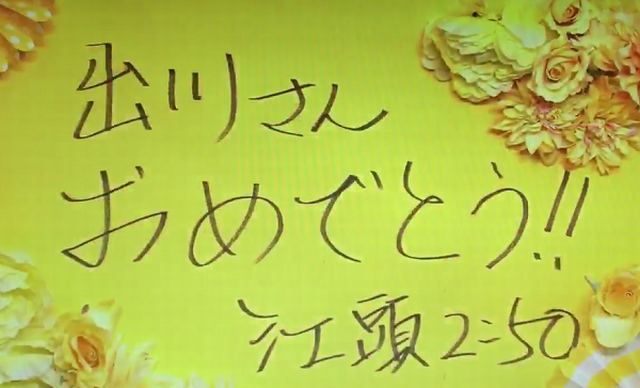 出川さん
おめでとう!!
江頭2:50